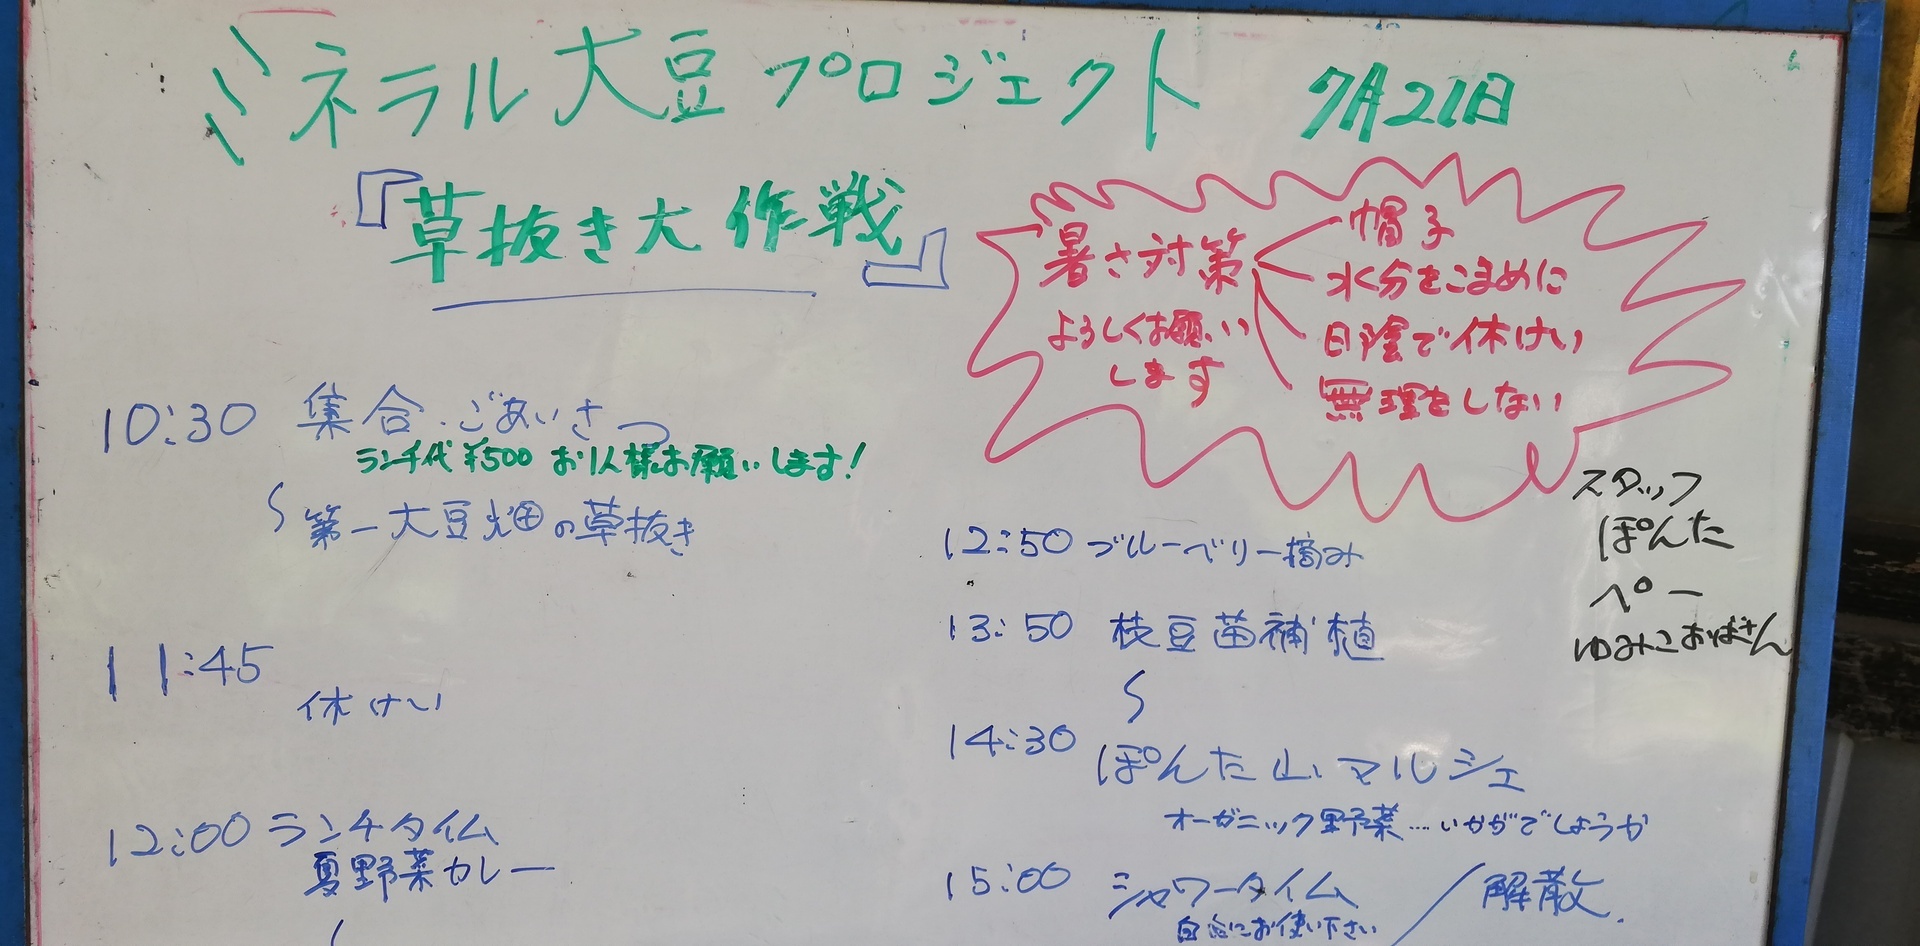 ミネラル大豆プロジェクト 7月21日
『草抜き大作戦』
暑さ対策
よろしくお願い
します
帽子
水分をこまめに
日陰で休けい
無理をしない
10:30 集合・ごあいさつ
ランチ代¥500 お1人様お願いします!
〜 第一大豆畑の草抜き
11:45
休けい
12:00 ランチタイム
夏野菜カレー
12:50 ブルーベリー摘み
13:50 枝豆苗補植
〜
14:30
ぽんた山マルシェ
オーガニック野菜…いかがでしょうか
15:00 シャワータイム / 解散.
自由にお使い下さい
スタッフ
ぽんた
ペー
ゆみこおばさん